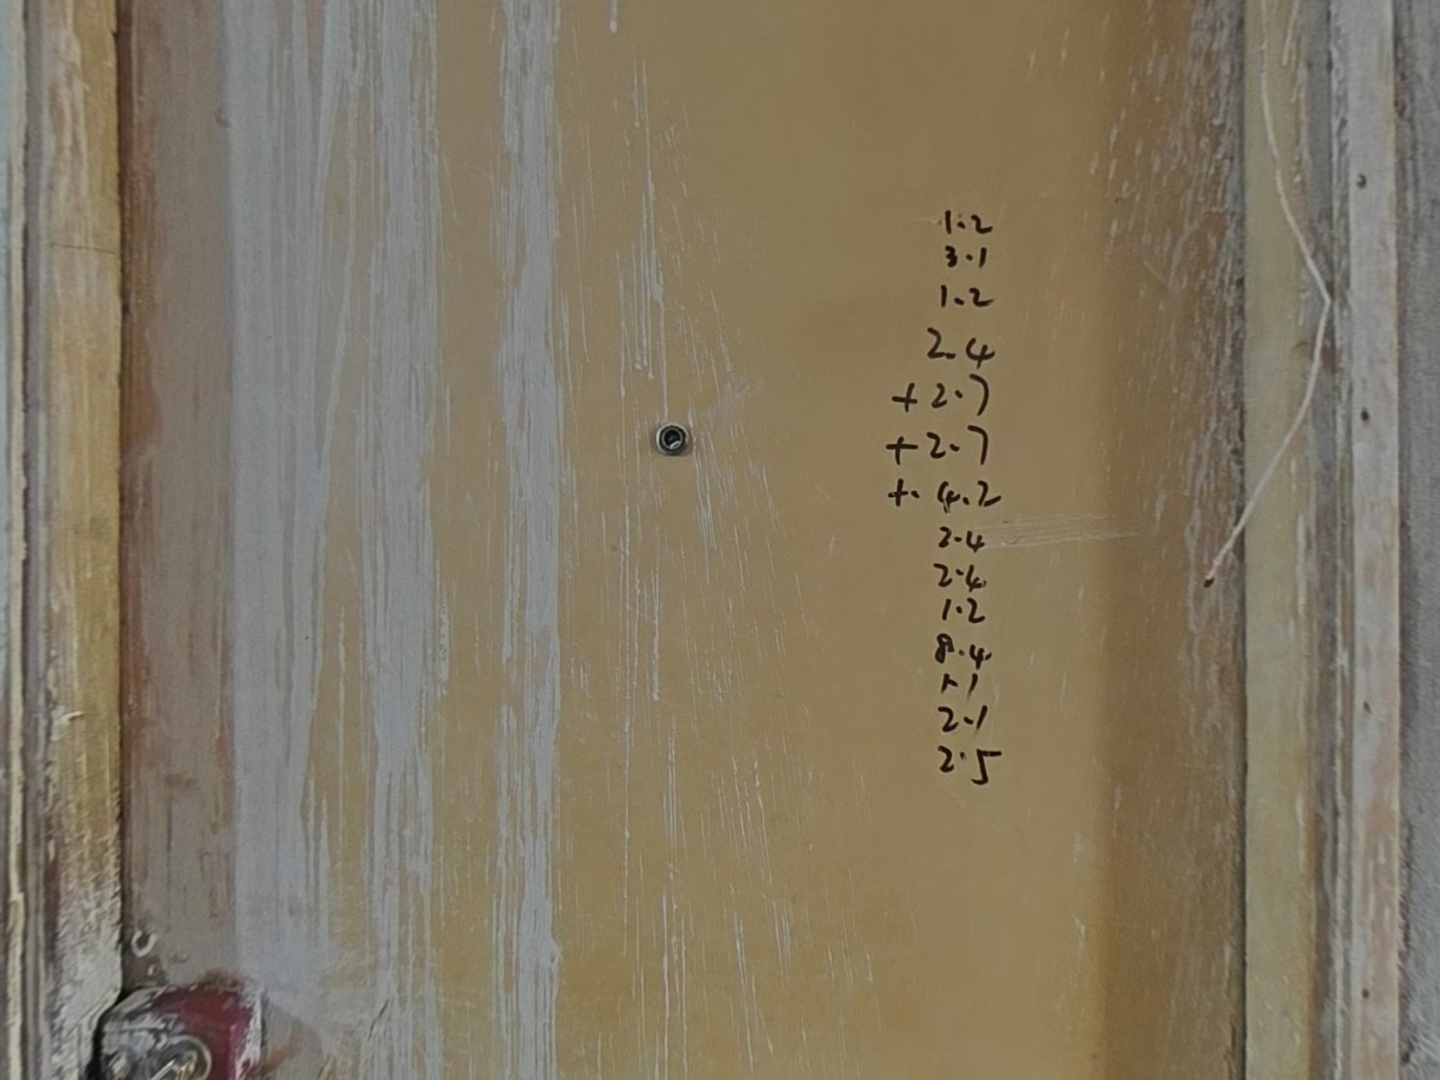 1.2
3.1
1.2
2.4
+2.7
+2.7
+.4.2
2.4
2.4
1.2
8.4
1.1
2.1
2.5